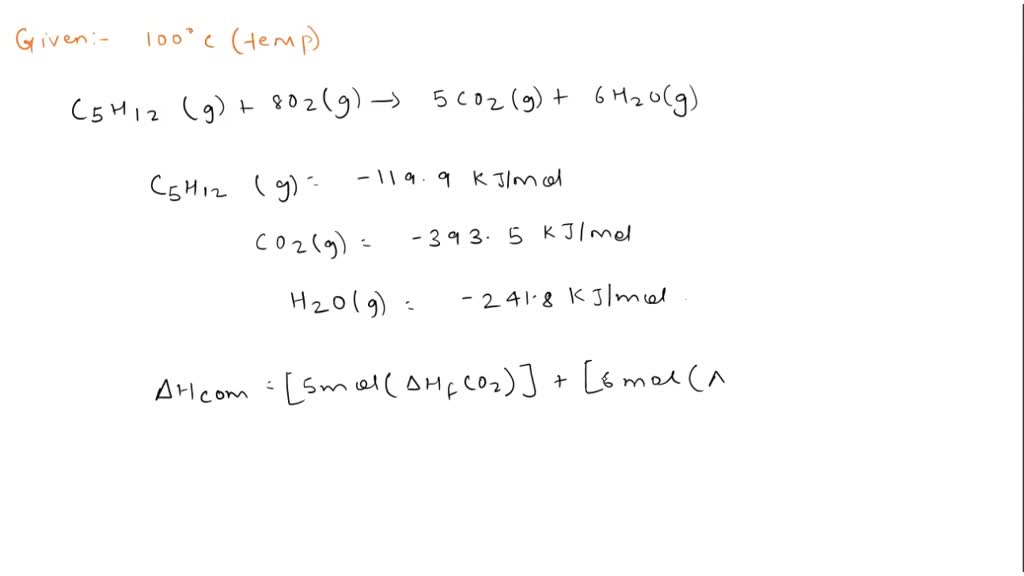 Given:- 100°C (temp)
C5H12 (g) + 8O2(g) → 5CO2(g) + 6H2O(g)
C5H12 (g) = -119.9 KJ/mol
CO2(g) = -393.5 KJ/mol
H2O(g) = -241.8 KJ/mol
ΔHcom = [5mol(ΔHfCO2)] + [6mol(Λ